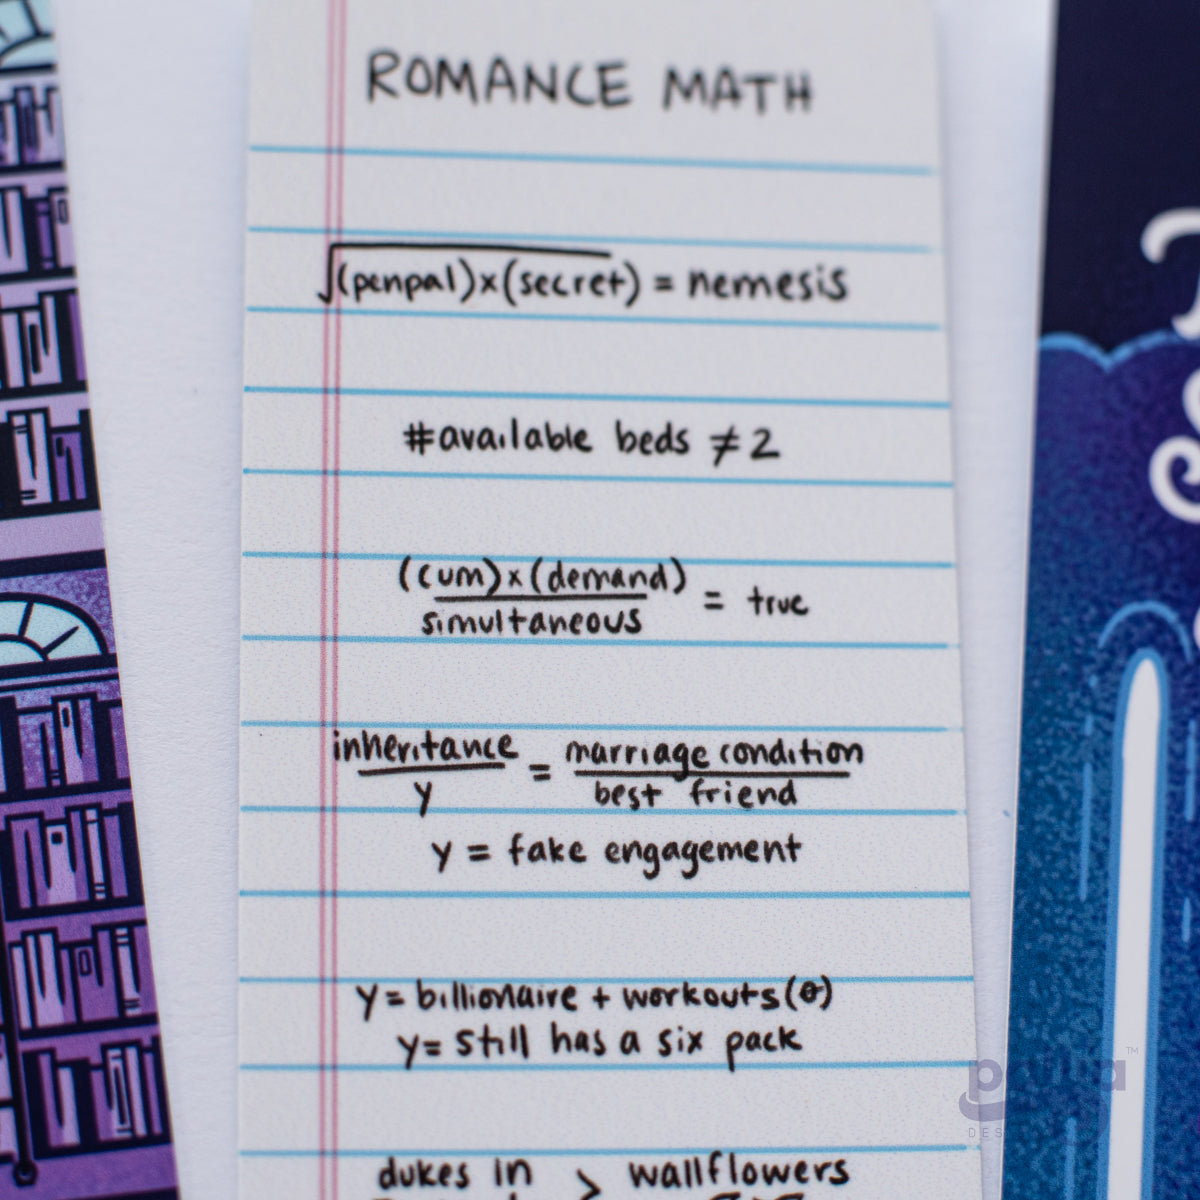 ROMANCE MATH
√(penpal)x(secret) = nemesis
#available beds ≠ 2
(cum)x(demand)
simultaneous
= true
inheritance
y
=
marriage condition
best friend
y = fake engagement
y = billionaire + workouts(0)
y= still has a six pack
dukes in > wallflowers